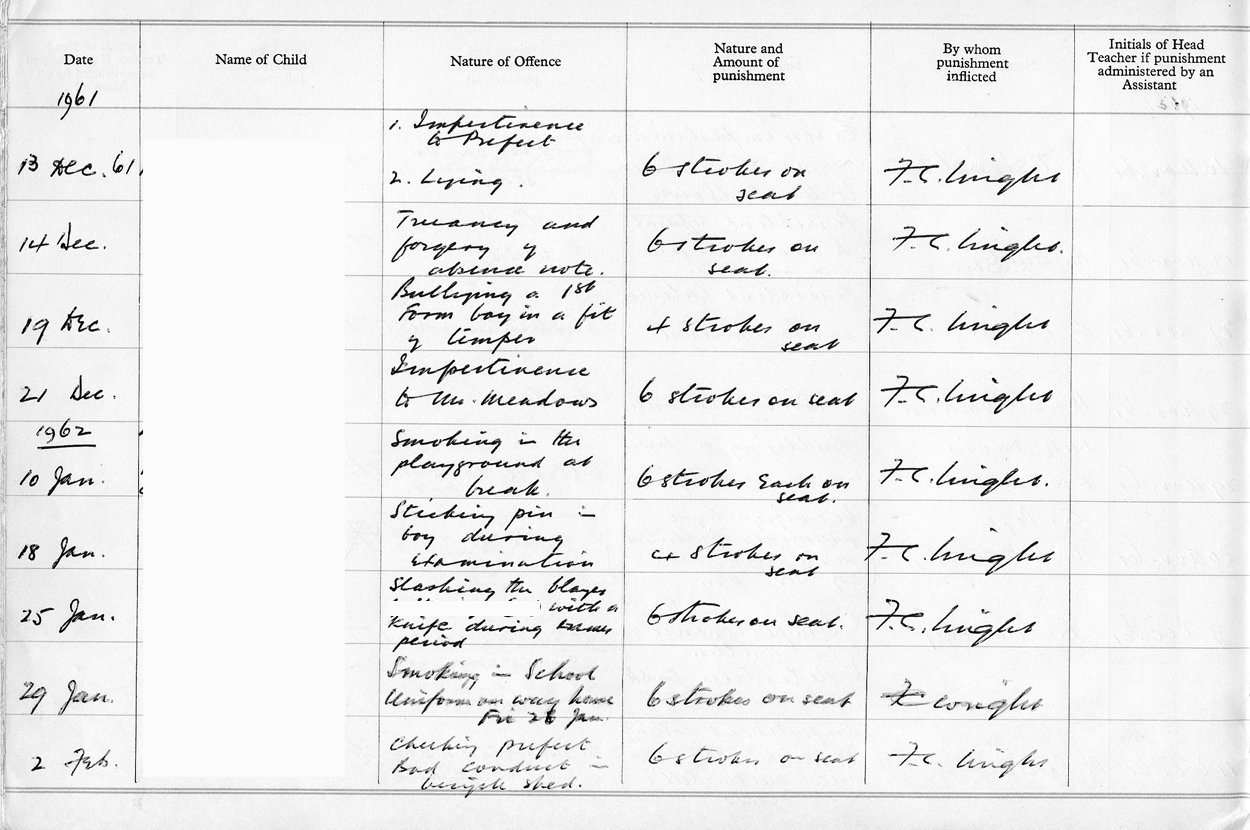 Date
Name of Child
Nature of Offence
Nature and
Amount of
punishment
By whom
punishment
inflicted
Initials of Head
Teacher if punishment
administered by an
Assistant
1961
13 Dec. '61.
1. Impertinence
to Prefect
2. Lying.
6 strokes on
seat
F.C.
14 Dec.
Truancy and
forgery of
absence note.
6 strokes on
seat.
F.C.
19 Dec.
Bullying a 1st
Form boy in a fit
of temper
4 strokes on
seat
F.C.
21 Dec.
Impertinence
to Mr. Meadows
6 strokes on seat
F.C.
1962
10 Jan.
Smoking in the
playground at
break.
6 strokes Each on
seat.
F.C.
18 Jan.
Sticking pin in
boy during
examination
4 strokes on
seat
F.C.
25 Jan.
Slashing the blazer
with a
knife during exams
period
6 strokes on seat.
F.C.
29 Jan.
Smoking in School
Uniform on way home
Fri 26 Jan.
6 strokes on seat
2 Feb.
Cheeking prefect
Bad conduct in
bicycle shed.
6 strokes on seat
F.C.